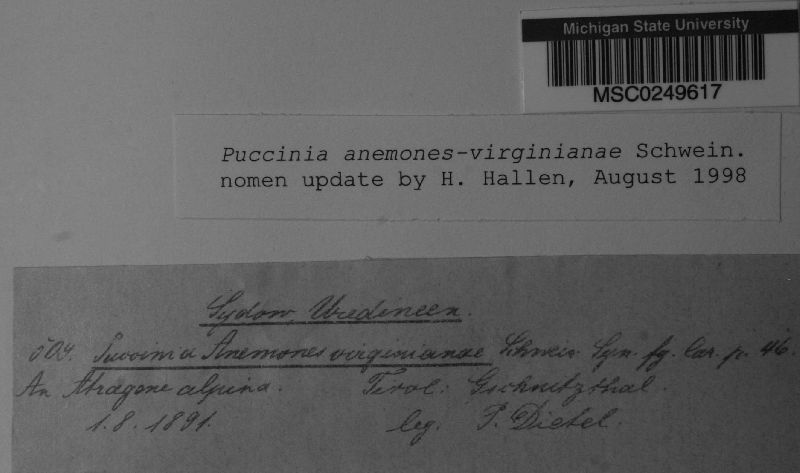 Michigan State University
MSC0249617
Puccinia anemones-virginianae Schwein.
nomen update by H. Hallen, August 1998
Sydow, Uredineen.
504. Puccinia Anemones virginianae Schwein. Syn. fg. Car. p. 46.
An Atragene alpina. Tirol: Gschnitzthal.
1. 8. 1891. leg. P. Dietel.